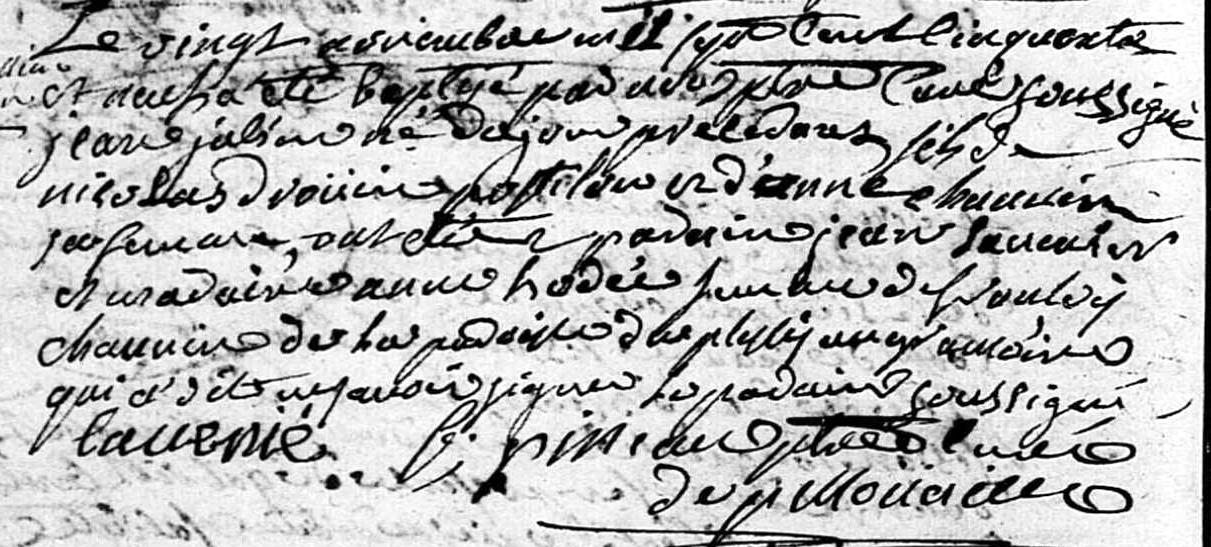 Le vingt novembre mil sept cent cinquante
et neuf a été baptisé par nous ptre curé soussigné
jean julien né du jour précédent fils de
nicolas drouin postilon et d'anne chauvin
sa femme, ont été parain jean lavenier
et maraine anne hodée femme de
chauvin de la paroisse du plessis
qui a dit ne savoir signer le parain soussigné
lavenié ptre curé
de